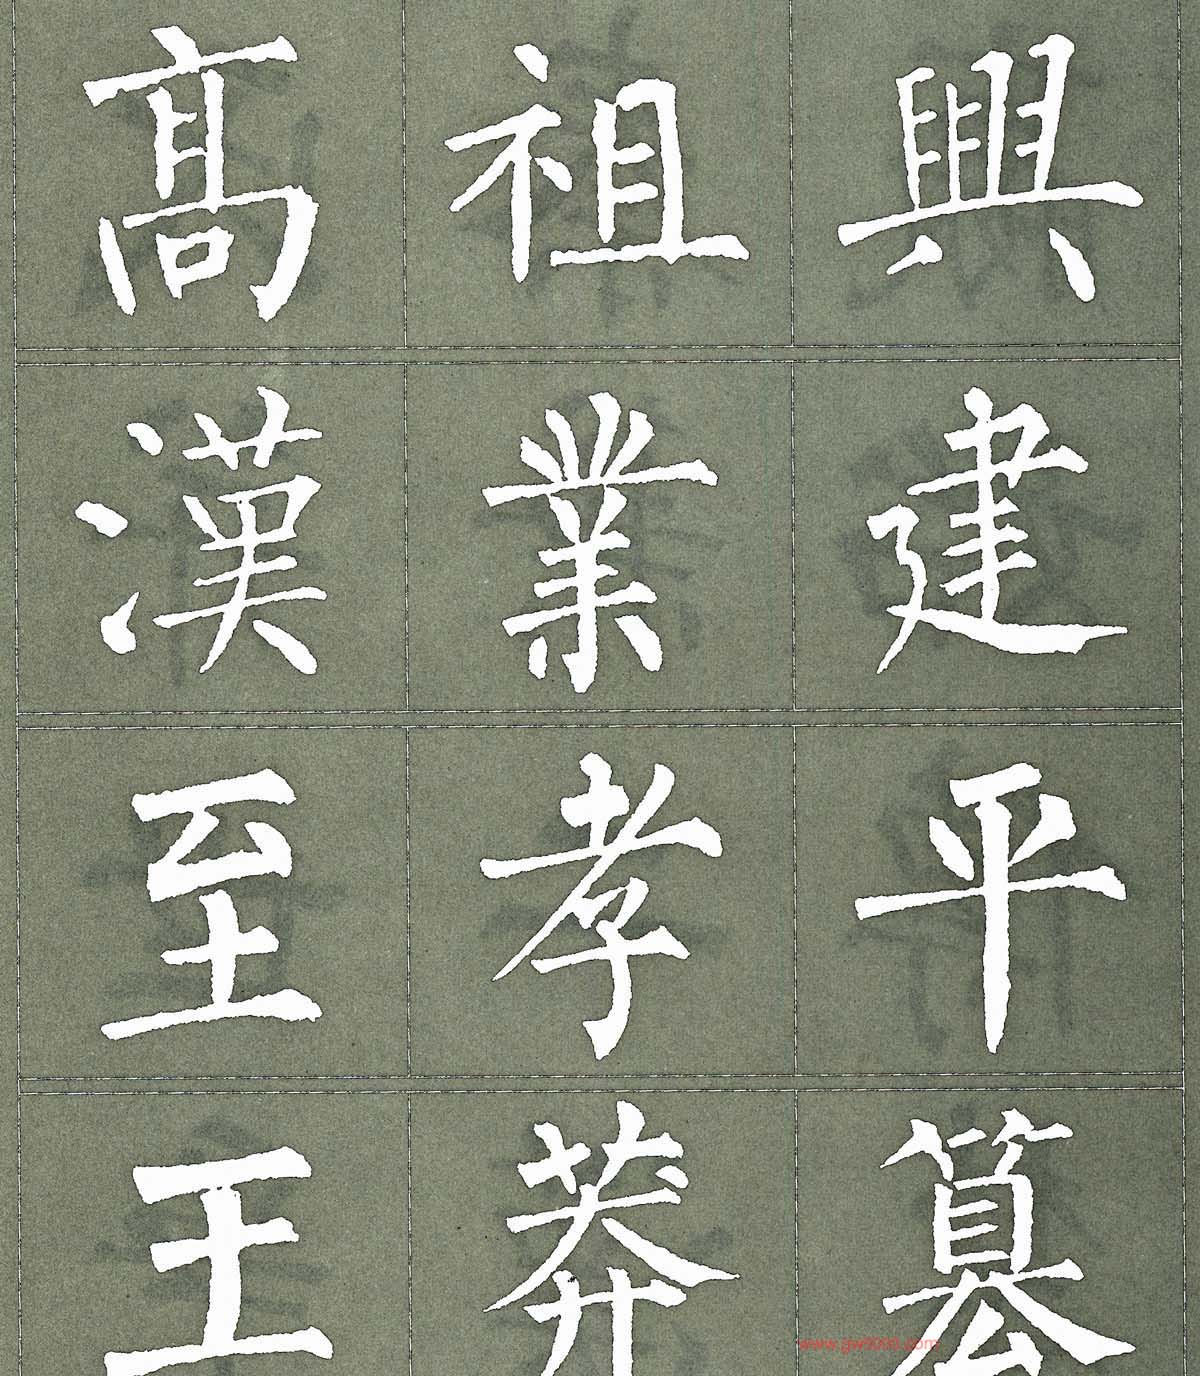 高祖興
漢業建
至孝平
王莽篡
www.gw5000.com